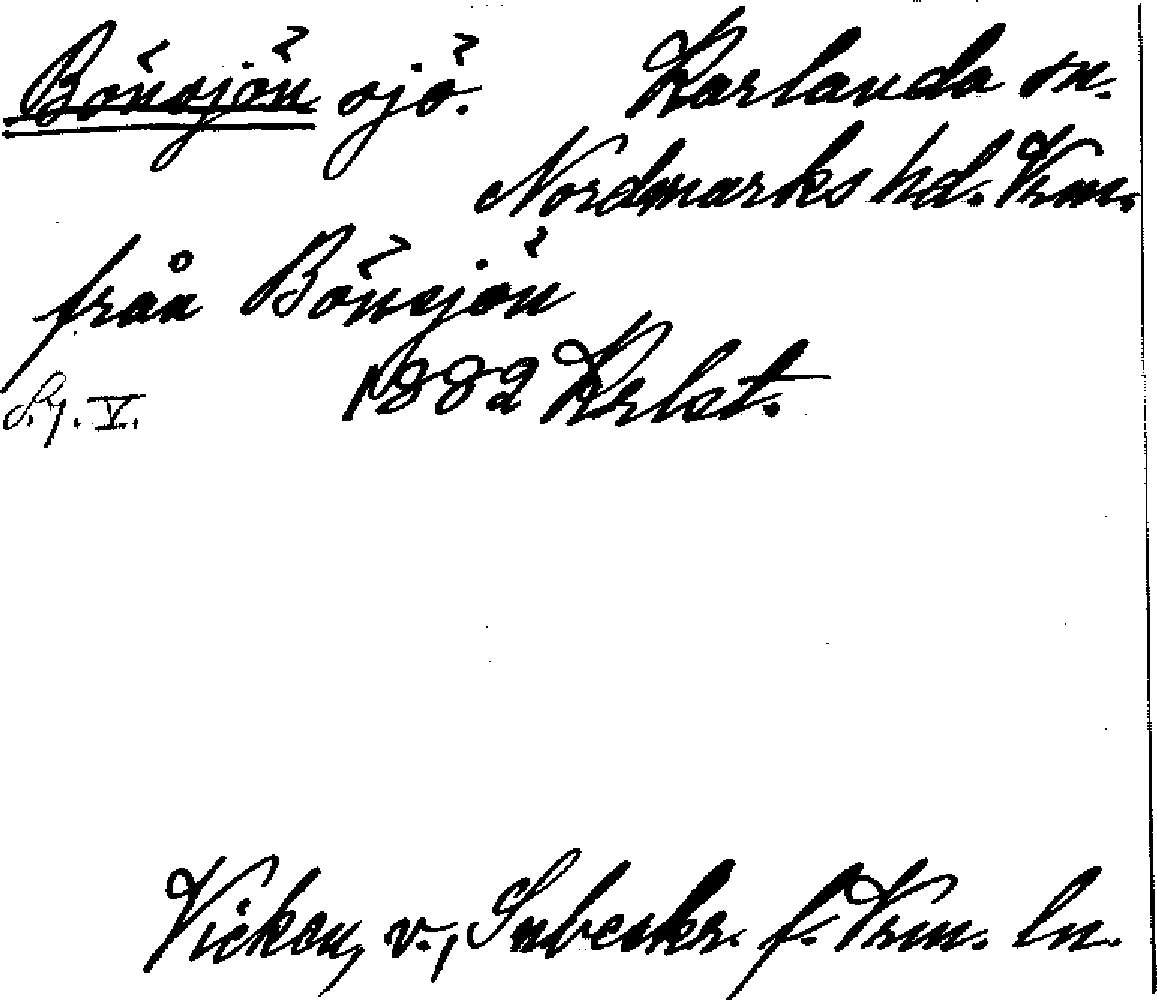 Bönsjön sjö. Karlanda sn.
Nordmarks hd. Vrm.
från Bönsjön
1882 Krlst.
Lj. V.
Vicken, v., Inbeskr. f. Vrm. ln.